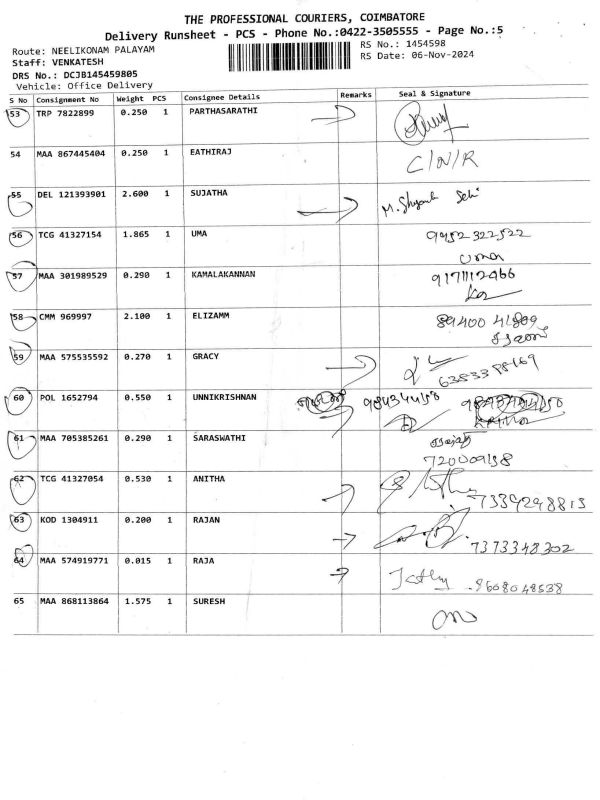 THE PROFESSIONAL COURIERS, COIMBATORE
Delivery Runsheet - PCS - Phone No.:0422-3505555 - Page No.:5
Route: NEELIKONAM PALAYAM
RS No.: 1454598
Staff: VENKATESH
RS Date: 06-Nov-2024
DRS No.: DCJB145459805
Vehicle: Office Delivery
S No Consignment No Weight PCS Consignee Details Remarks Seal & Signature
53 TRP 7822899 0.250 1 PARTHASARATHI
54 MAA 867445404 0.250 1 EATHIRAJ C/N/R
55 DEL 121393901 2.600 1 SUJATHA
56 TCG 41327154 1.865 1 UMA 9952322522
uma
57 MAA 301989529 0.290 1 KAMALAKANNAN
58 CMM 969997 2.100 1 ELIZAMM 89400 41809
59 MAA 575535592 0.270 1 GRACY
60 POL 1652794 0.550 1 UNNIKRISHNAN 984344150
61 MAA 705385261 0.290 1 SARASWATHI
720009138
62 TCG 41327054 0.530 1 ANITHA
7339298813
63 KOD 1304911 0.200 1 RAJAN
7373348302
64 MAA 574919771 0.015 1 RAJA
9608048538
65 MAA 868113864 1.575 1 SURESH